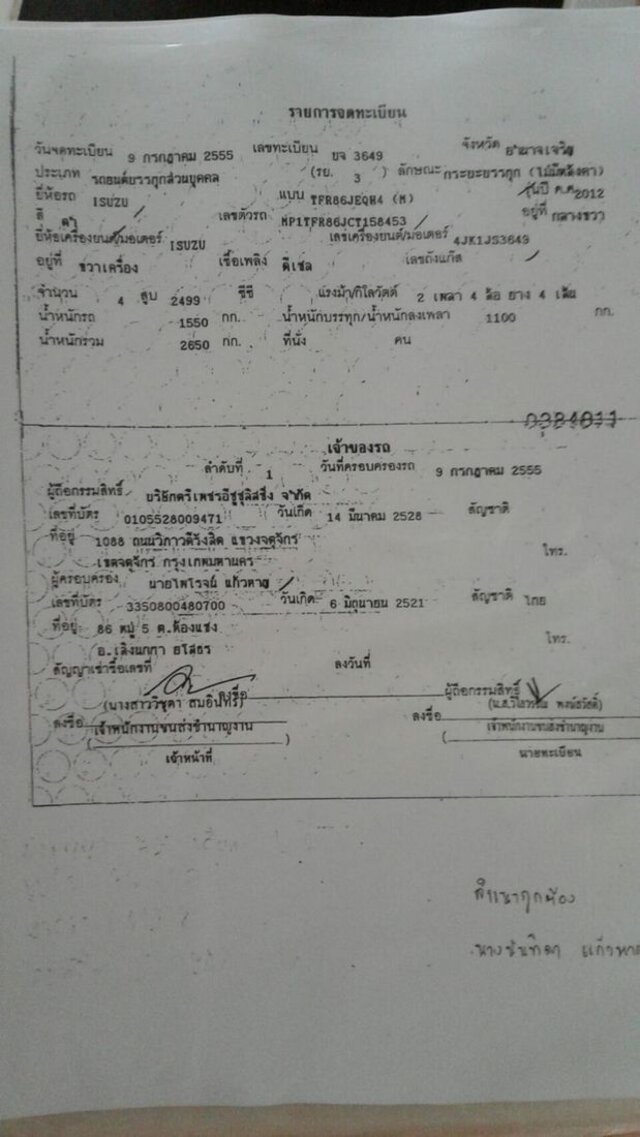 รายการจดทะเบียน
วันจดทะเบียน 9 กรกฎาคม 2555 เลขทะเบียน บจ 3649 จังหวัด อำนาจเจริญ
ประเภท รถยนต์บรรทุกส่วนบุคคล (รย. 3 ) ลักษณะ กระบะบรรทุก (ไม่มีหลังคา)
ยี่ห้อรถ ISUZU แบบ TFR86JEQH4 (M) รุ่นปี ค.ศ 2012
สี ดำ เลขตัวรถ MP1TFR86JCT158453 อยู่ที่ กลางขวา
ยี่ห้อเครื่องยนต์/มอเตอร์ ISUZU เลขเครื่องยนต์/มอเตอร์ 4JK1JS3649
อยู่ที่ ขวาเครื่อง เชื้อเพลิง ดีเซล เลขถังแก๊ส
จำนวน 4 สูบ 2499 ซีซี แรงม้า/กิโลวัตต์ 2 เพลา 4 ล้อ ยาง 4 เส้น
น้ำหนักรถ 1550 กก. น้ำหนักบรรทุก/น้ำหนักลงเพลา 1100 กก.
น้ำหนักรวม 2650 กก. ที่นั่ง คน
0384011
เจ้าของรถ
ลำดับที่ 1 วันที่ครอบครองรถ 9 กรกฎาคม 2555
ผู้ถือกรรมสิทธิ์ บริษัทตรีเพชรอีซูซุลิสซิ่ง จำกัด
เลขที่บัตร 0105528009471 วันเกิด 14 มีนาคม 2528 สัญชาติ
ที่อยู่ 1088 ถนนวิภาวดีรังสิต แขวงจตุจักร
เขตจตุจักร กรุงเทพมหานคร โทร.
ผู้ครอบครอง นายไพโรจน์ แก้วตาง
เลขที่บัตร 3350800480700 วันเกิด 6 มิถุนายน 2521 สัญชาติ ไทย
ที่อยู่ 86 หมู่ 5 ต.ห้องแซง
อ.เลิงนกทา ยโสธร โทร.
สัญญาเช่าซื้อเลขที่ ลงวันที่
ผู้ถือกรรมสิทธิ์
(นางสาววิชุดา สมอินทร์)
ลงชื่อ เจ้าพนักงานขนส่งชำนาญงาน ลงชื่อ เจ้าพนักงานขนส่งชำนาญงาน
( ) (
เจ้าหน้าที่ นายทะเบียน
สำเนาถูกต้อง